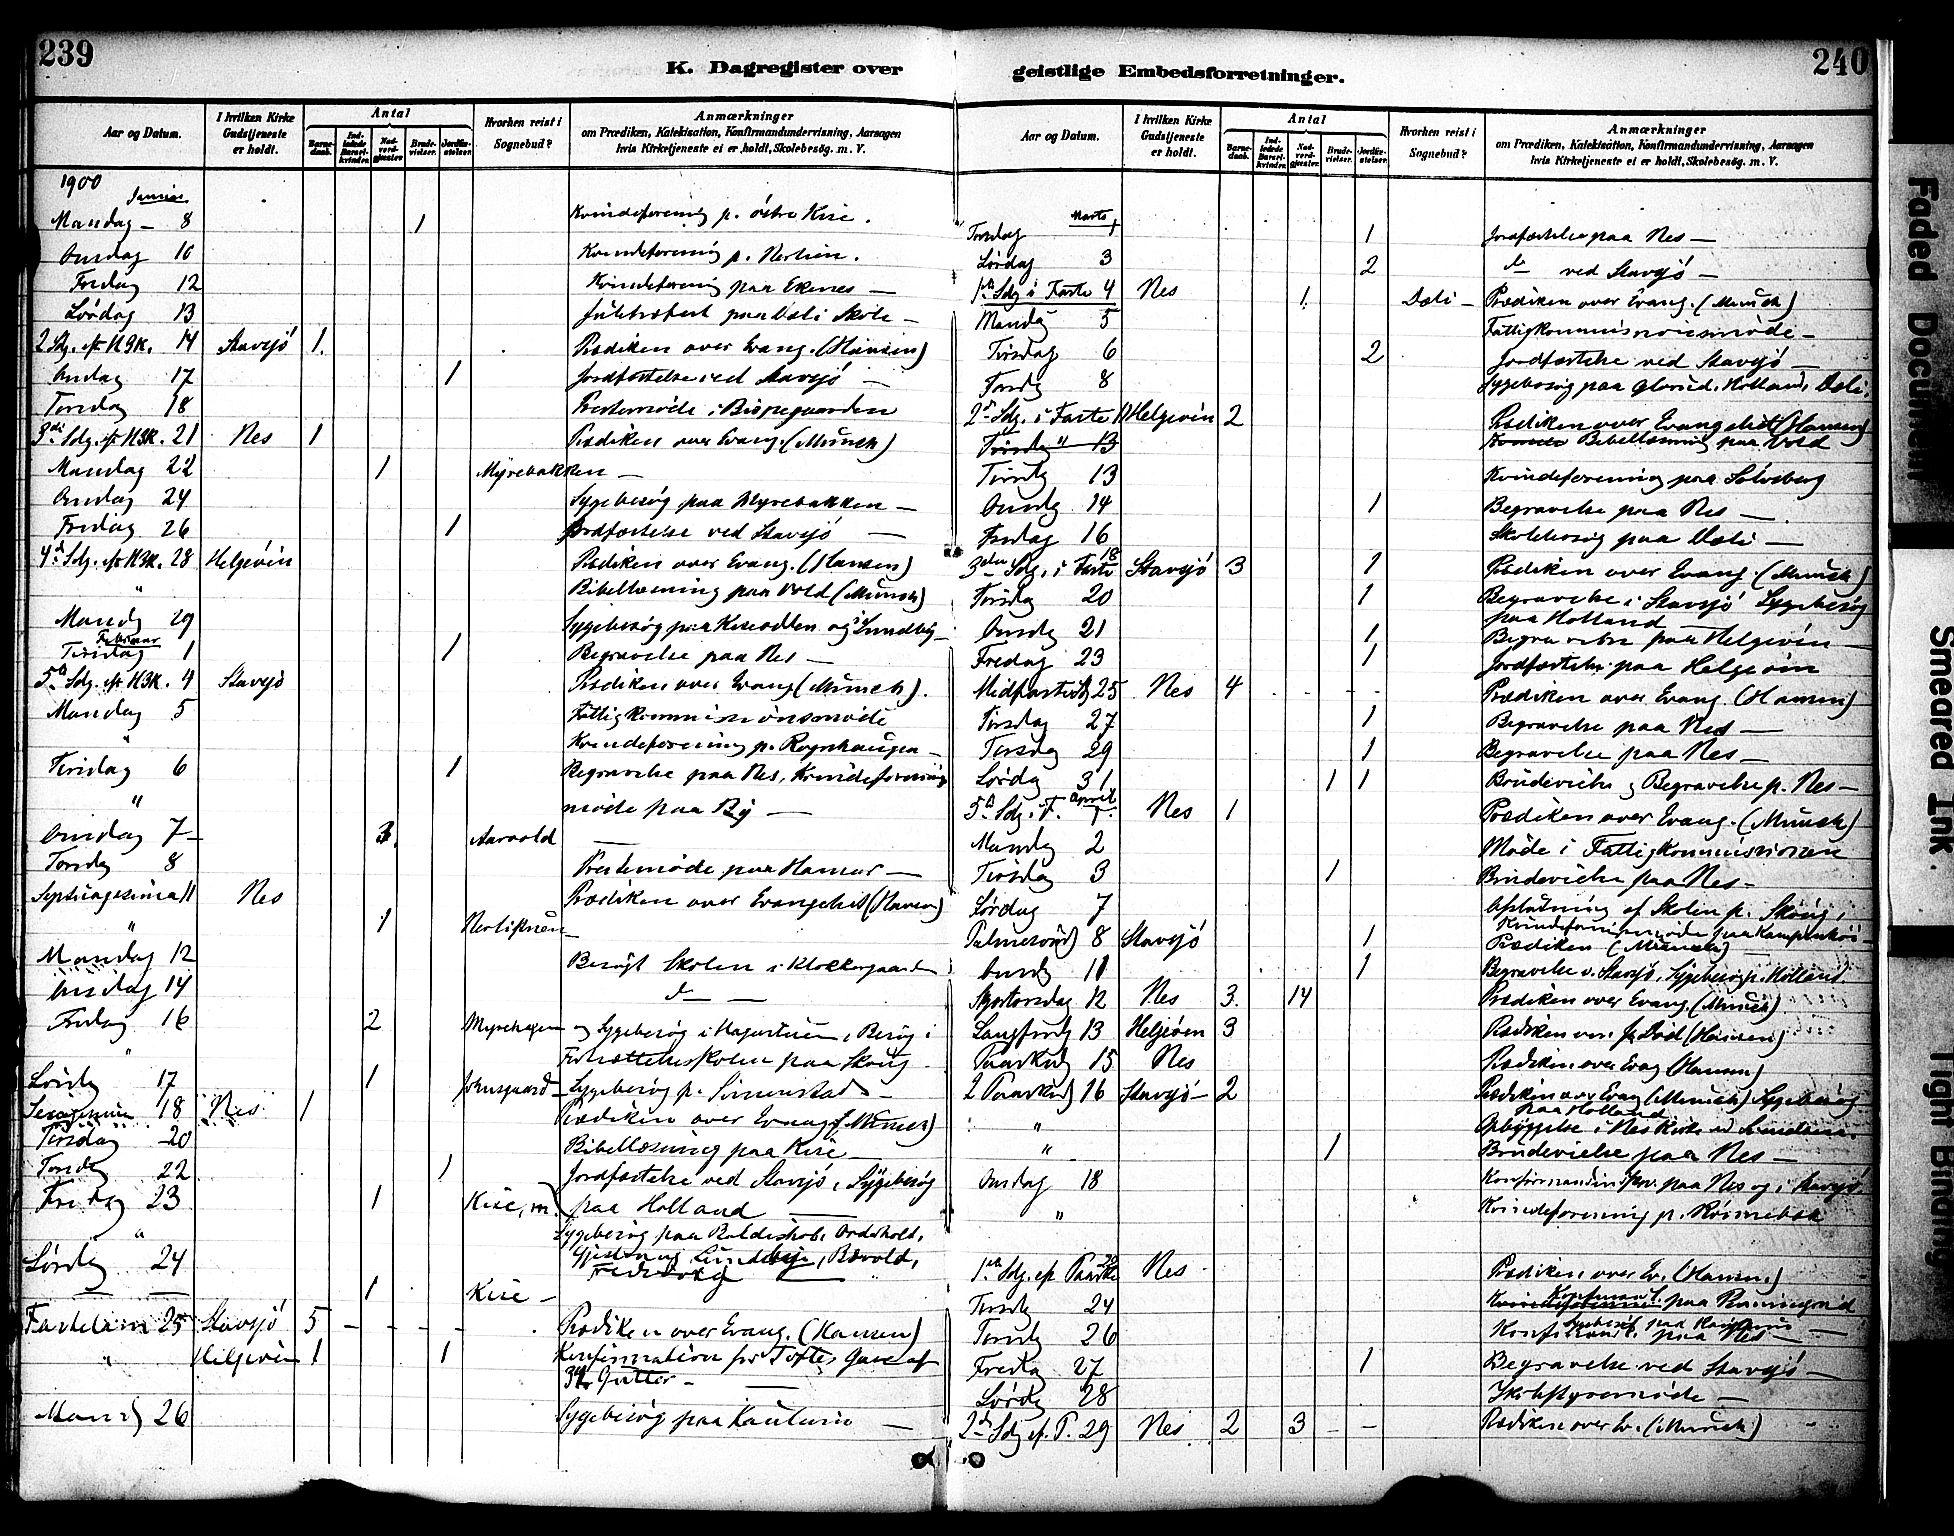 239
K. Dagregister over
Aar og Datum.
I hvilken Kirke Gudstjeneste er holdt.
Antal
Barnedaab.
Indledede Barselkvinder.
Nadvergjester.
Brudevielser.
Jordfæstelser.
Hvorhen reist i Sognebud?
Anmærkninger
om Prædiken, Katekisation, Konfirmandundervisning, Aarsagen
hvis Kirketjeneste ei er holdt, Skolebesøg. m. V.
1900
Januar
Mandag - 8 1 Kvindeforening p. østre Kise.
Onsdag 10 Kvindeforening p. Nerlien.
Fredag 12 Kvindeforening paa Ekenes -
Lørdag 13 Juletræfest paa Dæli Skole -
2 Sdg. ef. H3K. 14 Stavsjö 1. Prædiken over Evang. (Hansen)
Onsdag 17 1 Jordfæstelse ved Stavsjö -
Torsdag 18 Prestemöde i Bispegaarden
3die Sdg. ef. H3K. 21 Nes 1 Prædiken over Evang. (Münch)
Mandag 22 1 Myrebakken -
Onsdag 24 Sygebesög paa Myrebakken -
Fredag 26 1 Jordfæstelse ved Stavsjö -
4de Sdg. ef. H3K. 28 Helgeöen Prædiken over Evang. (Hansen)
" Bibellæsning paa Vold (Münch)
Mandg 29 Sygebesög paa og i Sundby -
Februar
Tirsdag 1 1 Begravelse paa Nes -
5te Sdg. ef. H3K. 4 Stavsjö Prædiken over Evang (Münch).
Mandag 5 Fattigkommissionsmöde
" Kvindeforening p. Rognhaugen -
Tirsdag 6 1 Begravelse paa Nes, Kvindeforenings
" möde paa By -
Onsdag 7 - 3. Aarvold -
Torsdg 8 Prestemöde paa Hamar -
Septuagesima 11 Nes Prædiken over Evangeliet (Hansen)
" 1
Mandag 12 Besögt Skolen i Klokkergaarden
Onsdag 14 do -
Fredag 16 2 Myrehagen og Sygebesög i , Besög i
" Fortsættelsesskolen paa Skoug
Lördg 17 1 Sygebesög p. Simenstad -
18 Nes 1 Prædiken over Evang. (Münch)
Tirsdag 20 Bibellæsning paa Kise -
Torsdg 22 1 Jordfæstelse ved Stavsjö, Sygebesög
Fredag 23 1 Kise, m. paa Holland -
" Sygebesög paa
Lördg 24 Lundbye, Bævold,
1 Kise -
Fastelavn 25 Stavsjö 5 - - - - Prædiken over Evang. (Hansen)
" Helgeöen 1 1 Konfirmation for Tofte, Gave af
3 Gutter -
Mandg 26 Sygebesög paa -
240
geistlige Embedsforretninger.
Aar og Datum.
I hvilken Kirke Gudstjeneste er holdt.
Antal
Barnedaab.
Indledede Barselkvinder.
Nadvergjester.
Brudevielser.
Jordfæstelser.
Hvorhen reist i Sognebud?
Anmærkninger
om Prædiken, Katekisation, Konfirmandundervisning, Aarsagen
hvis Kirketjeneste ei er holdt, Skolebesøg. m. V.
Marts
Torsdag 1 1 Jordfæstelse paa Nes -
Lördag 3 2 do ved Stavsjö -
1ste Sdg i Faste 4 Nes 1. Dæli - Prædiken over Evang. (Münch)
Mandg 5 Fattigkommissionsmöde -
Tirsdag 6 2 Jordfæstelse ved Stavsjö -
Torsdg 8 Sygebesög paa , Holland, Dæli.
2den Sdg. i Faste 11 Helgeöen 2 Prædiken over Evangeliet (Hansen)
Tirsdag " 13 Bibellæsning paa Vold
Tirsdg 13 Kvindeforening paa Sölvsberg
Onsdg 14 1 Begravelse paa Nes -
Fredag 16 Skolebesög paa Dæli -
3die Sdg. i Faste 18 Stavsjö 3 1 Prædiken over Evang. (Münch)
Tirsdag 20 1 Begravelse i Stavsjö Sygebesög
paa Holland -
Onsdg 21 1 Begravelse paa Helgeöen -
Fredag 23 1 Jordfæstelse paa Helgeöen
Midfastesdg 25 Nes 4 - - - - Prædiken over Evang. (Hansen)
Tirsdag 27 1 Begravelse paa Nes -
Torsdag 29 1 Begravelse paa Nes -
Lördag 31 1 1 Brudevielse og Begravelse p. Nes -
5te Sdg. i F. April 1. Nes 1 Prædiken over Evang. (Münch)
Mandg 2 Möde i Fattigkommissionen
Tirsdag 3 1 Brudevielse paa Nes -
Lördag 7 Afslutning af Skolen p. Skoug,
Kvindeforeningsmöde paa
Palmesönd 8 Stavsjö 1 Prædiken (Münch)
Onsdg 11 1 Begravelse v. Stavsjö, Sygebesög p. Holland.
Skjærtorsdag 12 Nes 3. 14 Prædiken over Evang. (Münch)
Langfredg 13 Helgeöen 3 Prædiken over Jsu Död (Hansen)
Paaskedg 15 Nes Prædiken over Evang (Hansen)
2 Paaskedg 16 Stavsjö - 2 Prædiken over Evang (Münch) Sygebesög
paa Holland
" Opbyggelse i Nes Kirke ved
" 1 Brudevielse paa Nes -
Onsdag 18 Konfirmandindskriv. paa Nes og i Stavsjö.
" Kvindeforening p.
1ste Sdg. ef. Paaske Nes Prædiken over Ev. (Hansen.)
Tirsdg 24 Konfirmant. paa
Sygebesög paa
Torsdg 26 Konfirmant. paa Nes -
Fredag 27 1 Begravelse ved Stavsjö -
Lördg 28 Skolestyremöde -
2den Sdg ef. P. 29 Nes 2 3 - - Prædiken over Ev. (Münch)
Faded Document
Smeared Ink.
Tight Binding